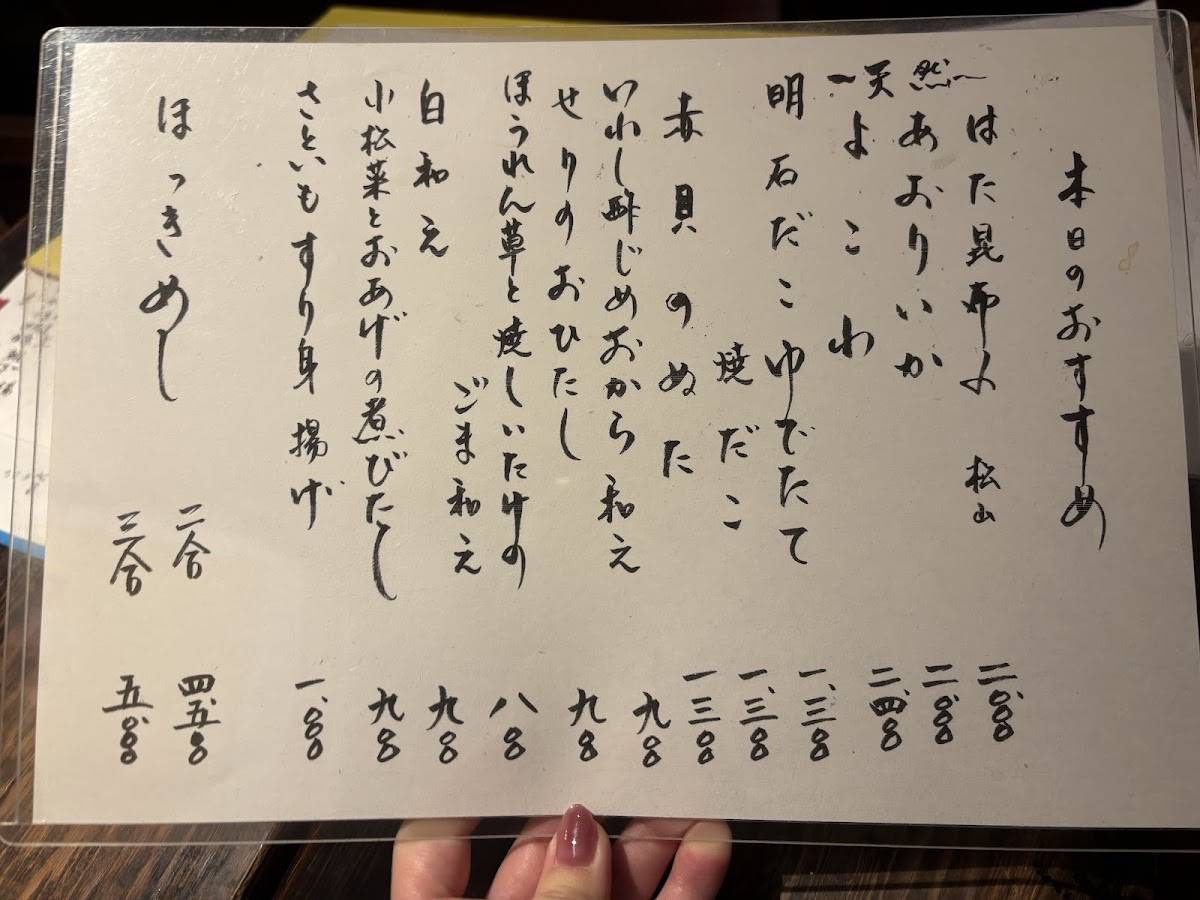 本日のおすすめ
はた昆布〆 松山 二、〇〇〇
天然
あおりいか 二、〇〇〇
よこわ 二、四〇〇
明石だこ ゆでたて 一、三〇〇
焼だこ 一、三〇〇
赤貝のぬた 一、三〇〇
いわし酢じめおから和え 九〇〇
せりのおひたし 九〇〇
ほうれん草と焼しいたけの
ごま和え 八〇〇
白和え 九〇〇
小松菜とおあげの煮びたし 九〇〇
さといもすり身揚げ 一、〇〇〇
ほっきめし 二合 四、五〇〇
三合 五、〇〇〇